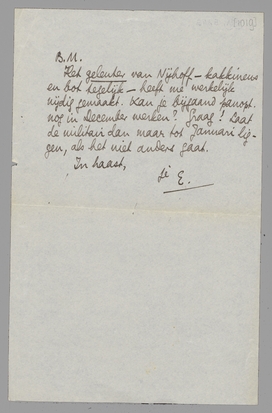 B.M.
Het geleuter van Nijhoff – kakkineus
en bot tegelijk – heeft me werkelijk
nijdig gemaakt. Kan je bijgaand panopt.
nog in December werken? Graag! Laat
de militair dan maar tot Januari lig-
gen, als het niet anders gaat.
In haast,
je E.